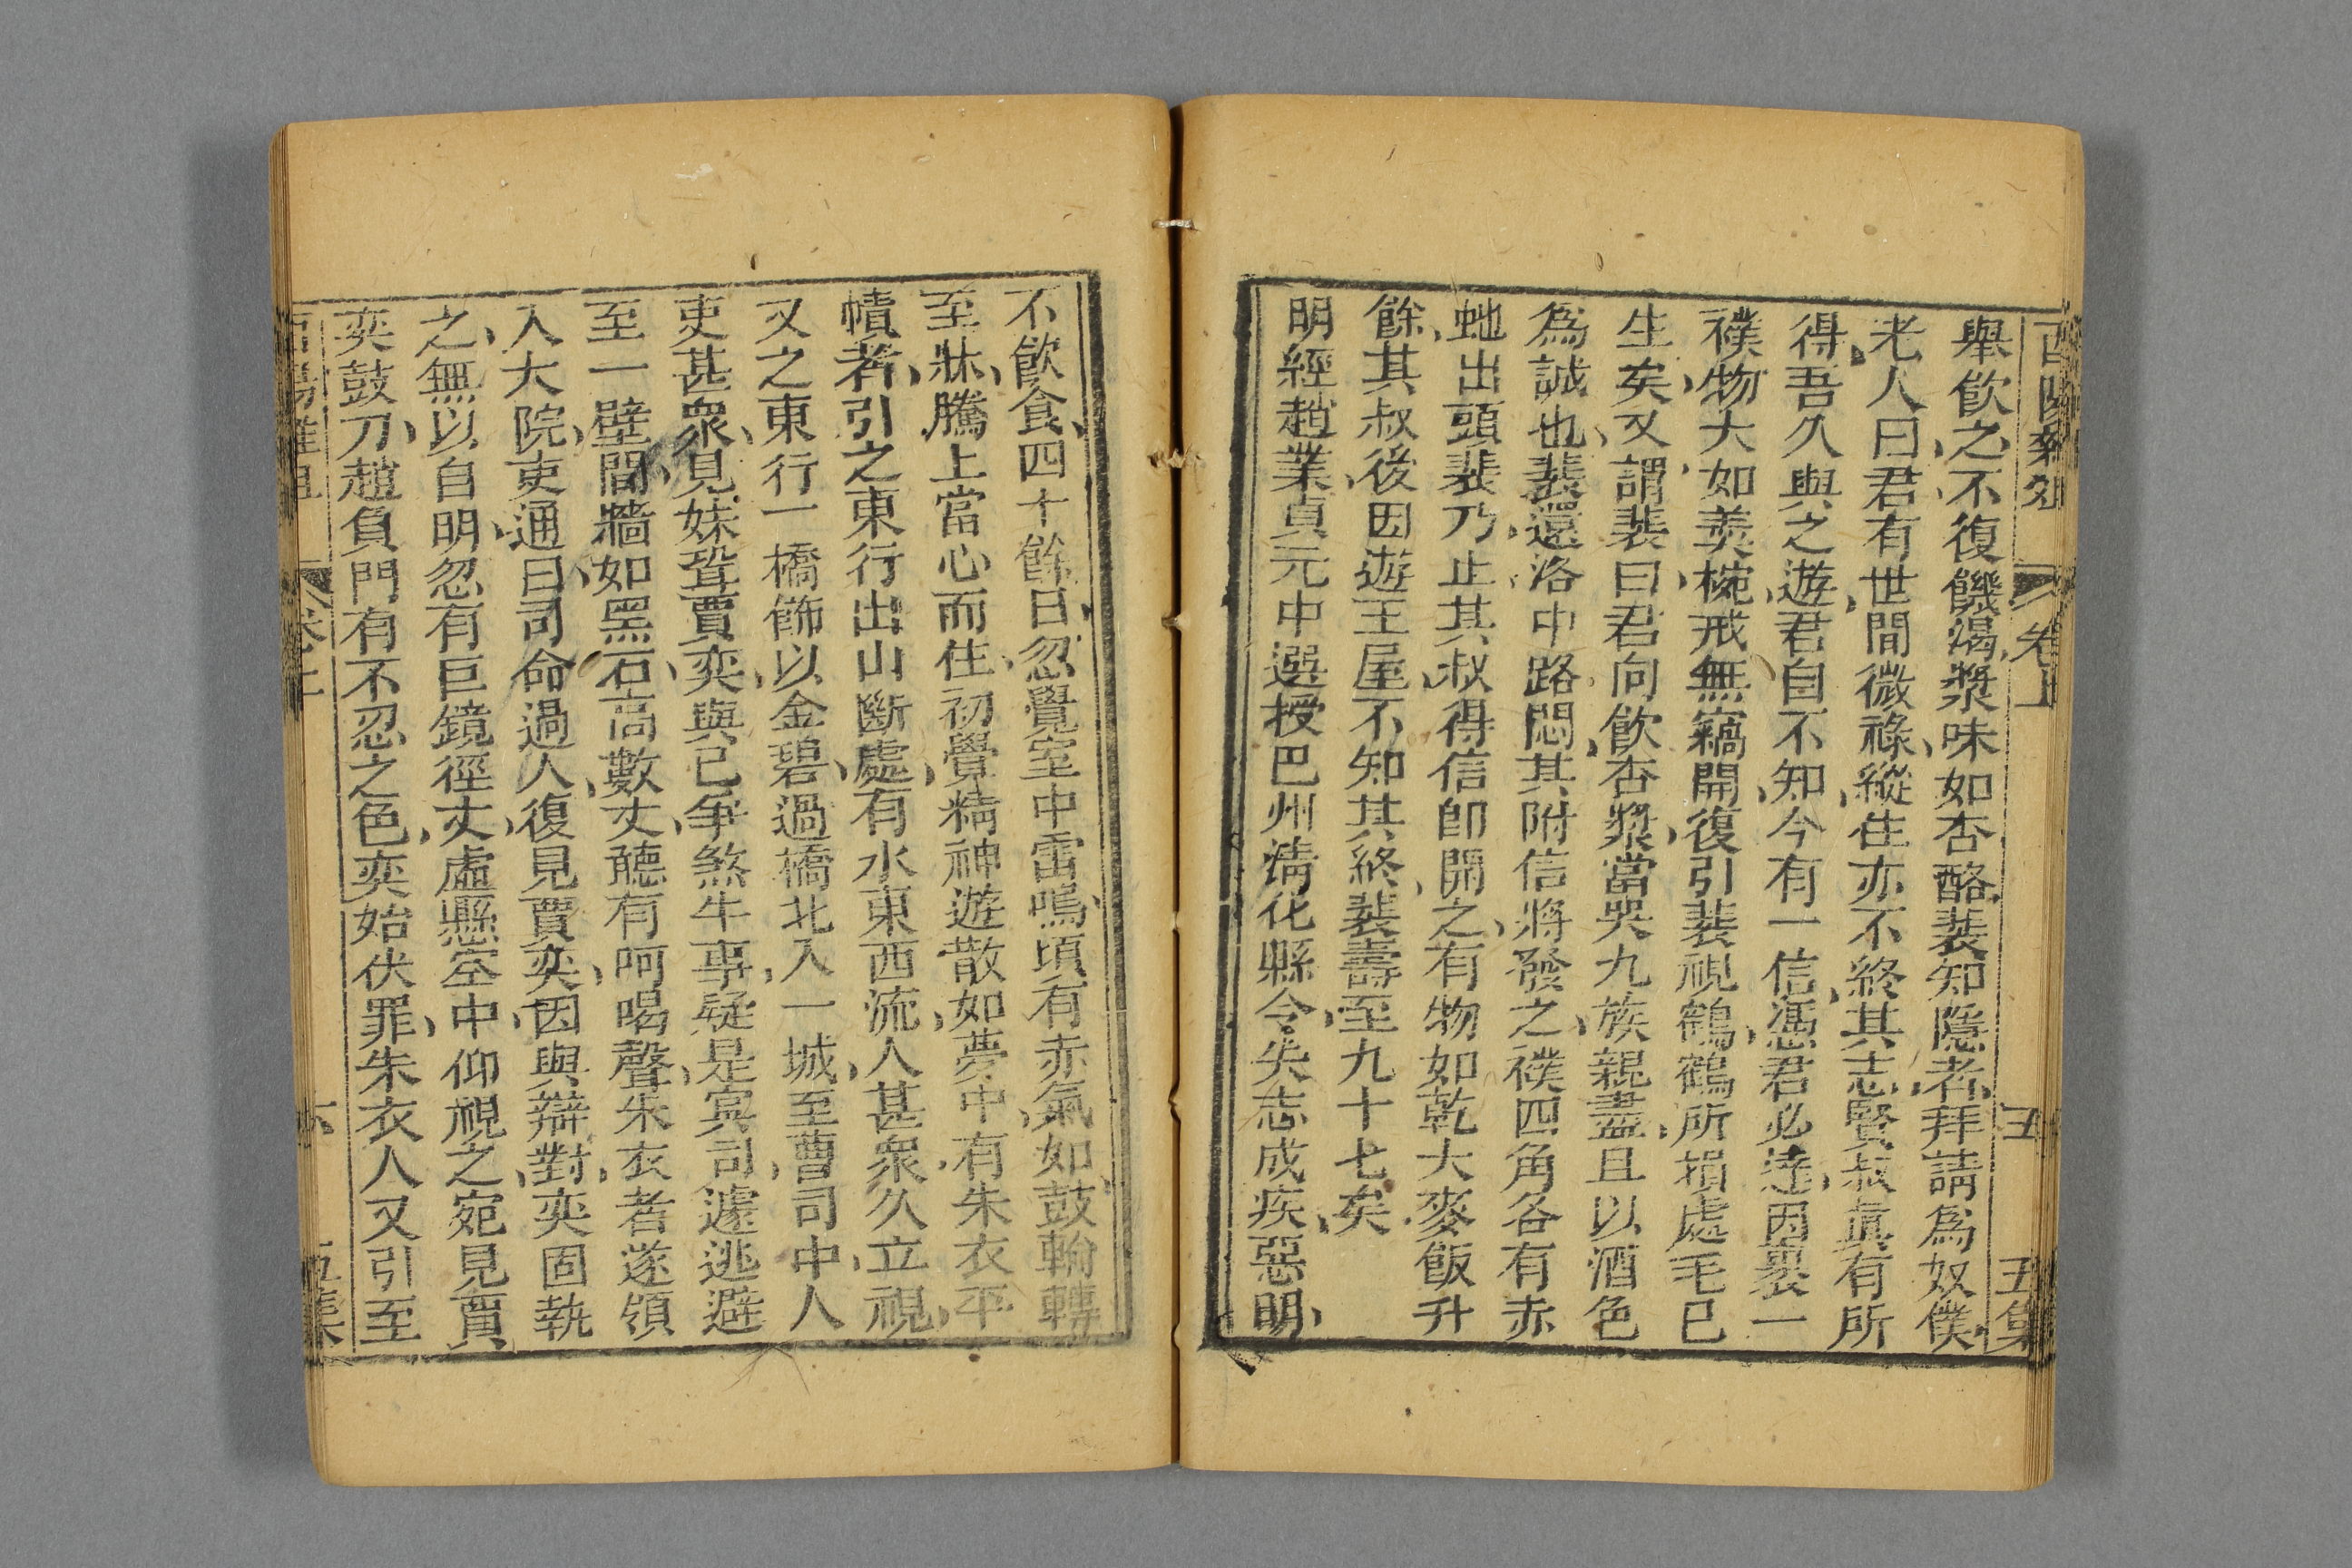 酉陽雜俎 卷上 五 五集
舉飲之不復饑渴漿味如杏酪裴知隱者拜請爲奴僕
老人曰君有世間微祿縱住亦不終其志賢叔眞有所
得吾久與之遊君自不知今有一信憑君必達因裹一
襆物大如羙椀戒無竊開復引裴視鶴鶴所損處毛已
生矣又謂裴曰君向飲杏漿當哭九族親盡且以酒色
爲誠也裴還洛中路悶其附信將發之襆四角各有赤
虵出頭裴乃止其叔得信卽開之有物如乾大麥飯升
餘其叔後因遊王屋不知其終裴壽至九十七矣
明經趙業貞元中選授巴州淸化縣令失志成疾惡明
不飲食四十餘日忽覺室中雷鳴頃有赤氣如鼓輪轉
至牀騰上當心而住初覺精神遊散如夢中有朱衣平
幘者引之東行出山斷處有水東西流人甚衆久立視
又之東行一橋飾以金碧過橋北入一城至曹司中人
吏甚衆見妹聟賈奕與己爭煞牛事疑是㝠司遽逃避
至一壁間牆如黑石高數丈聽有呵喝聲朱衣者遂領
入大院吏通曰司命過人復見賈奕因與辯對奕固執
之無以自明忽有巨鏡徑丈虛懸空中仰視之宛見賈
奕鼓刀趙負門有不忍之色奕始伏罪朱衣人又引至